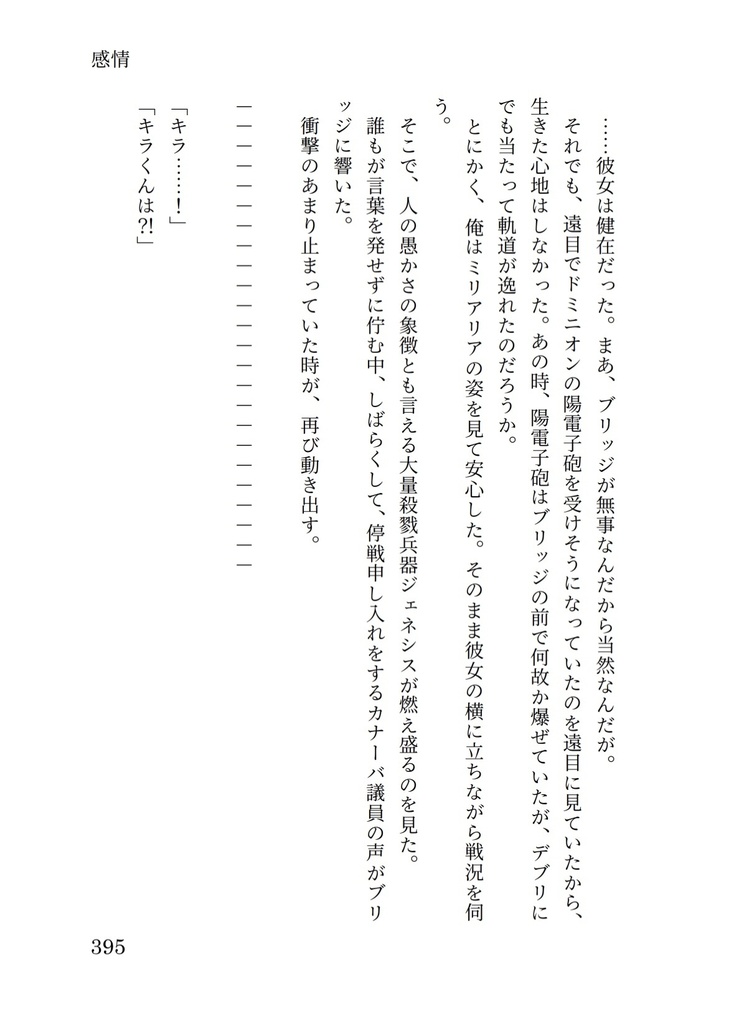 感情
……彼女は健在だった。まあ、ブリッジが無事なんだから当然なんだが。
それでも、遠目でドミニオンの陽電子砲を受けそうになっていたのを遠目に見ていたから、
生きた心地はしなかった。あの時、陽電子砲はブリッジの前で何故か爆ぜていたが、デブリに
でも当たって軌道が逸れたのだろうか。
とにかく、俺はミリアリアの姿を見て安心した。そのまま彼女の横に立ちながら戦況を伺
う。
そこで、人の愚かさの象徴とも言える大量殺戮兵器ジェネシスが燃え盛るのを見た。
誰もが言葉を発せずに佇む中、しばらくして、停戦申し入れをするカナーバ議員の声がブリ
ッジに響いた。
衝撃のあまり止まっていた時が、再び動き出す。
————————————————————————
「キラ……！」
「キラくんは⁈」
395